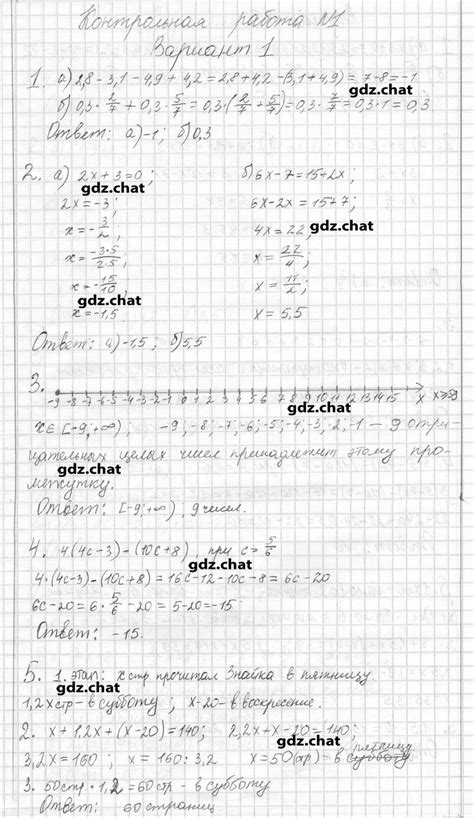 Контрольная работа №1
Вариант 1
1. а) 2,8 - 3,1 - 4,9 + 4,2 = 2,8 + 4,2 - (3,1 + 4,9) = 7 - 8 = -1
gdz.chat
б) 0,3 · 2/7 + 0,3 · 5/7 = 0,3 · (2/7 + 5/7) = 0,3 · 7/7 = 0,3 · 1 = 0,3
Ответ: а) -1; б) 0,3
gdz.chat
2. а) 2x + 3 = 0; б) 6x - 7 = 15 + 2x;
gdz.chat
2x = -3; 6x - 2x = 15 + 7;
gdz.chat
x = -3/2; 4x = 22;
x = -3·5/2·5; x = 22/4;
gdz.chat
x = -15/10; x = 11/2;
gdz.chat
x = -1,5 x = 5,5
Ответ: а) -1,5; б) 5,5
3.
-9 -8 -7 -6 -5 -4 -3 -2 -1 0 1 2 3 4 5 6 7 8 9 10 11 12 13 14 15 x x≥-9
gdz.chat
x ∈ [-9; +∞); -9; -8; -7; -6; -5; -4; -3; -2; -1 — 9 отри-
цательных целых чисел принадлежит этому про-
gdz.chat
межутку.
Ответ: [-9; +∞), 9 чисел.
gdz.chat
4. 4(4c-3) - (10c+8), при c = 5/6
gdz.chat
4·(4c-3) - (10c+8) = 16c - 12 - 10c - 8 = 6c - 20
6c - 20 = 6 · 5/6 - 20 = 5 - 20 = -15
gdz.chat
Ответ: -15.
5. 1. этап: x стр прочитал Знайка в пятницу
gdz.chat
1,2x стр - в субботу; x-20 - в воскресение.
2. x + 1,2x + (x-20) = 140; 2,2x + x - 20 = 140;
gdz.chat
пятницу
3,2x = 160; x = 160 : 3,2 x = 50 (стр) - в субботу
3. 50 стр · 1,2 = 60 стр - в субботу
gdz.chat
Ответ: 60 страниц